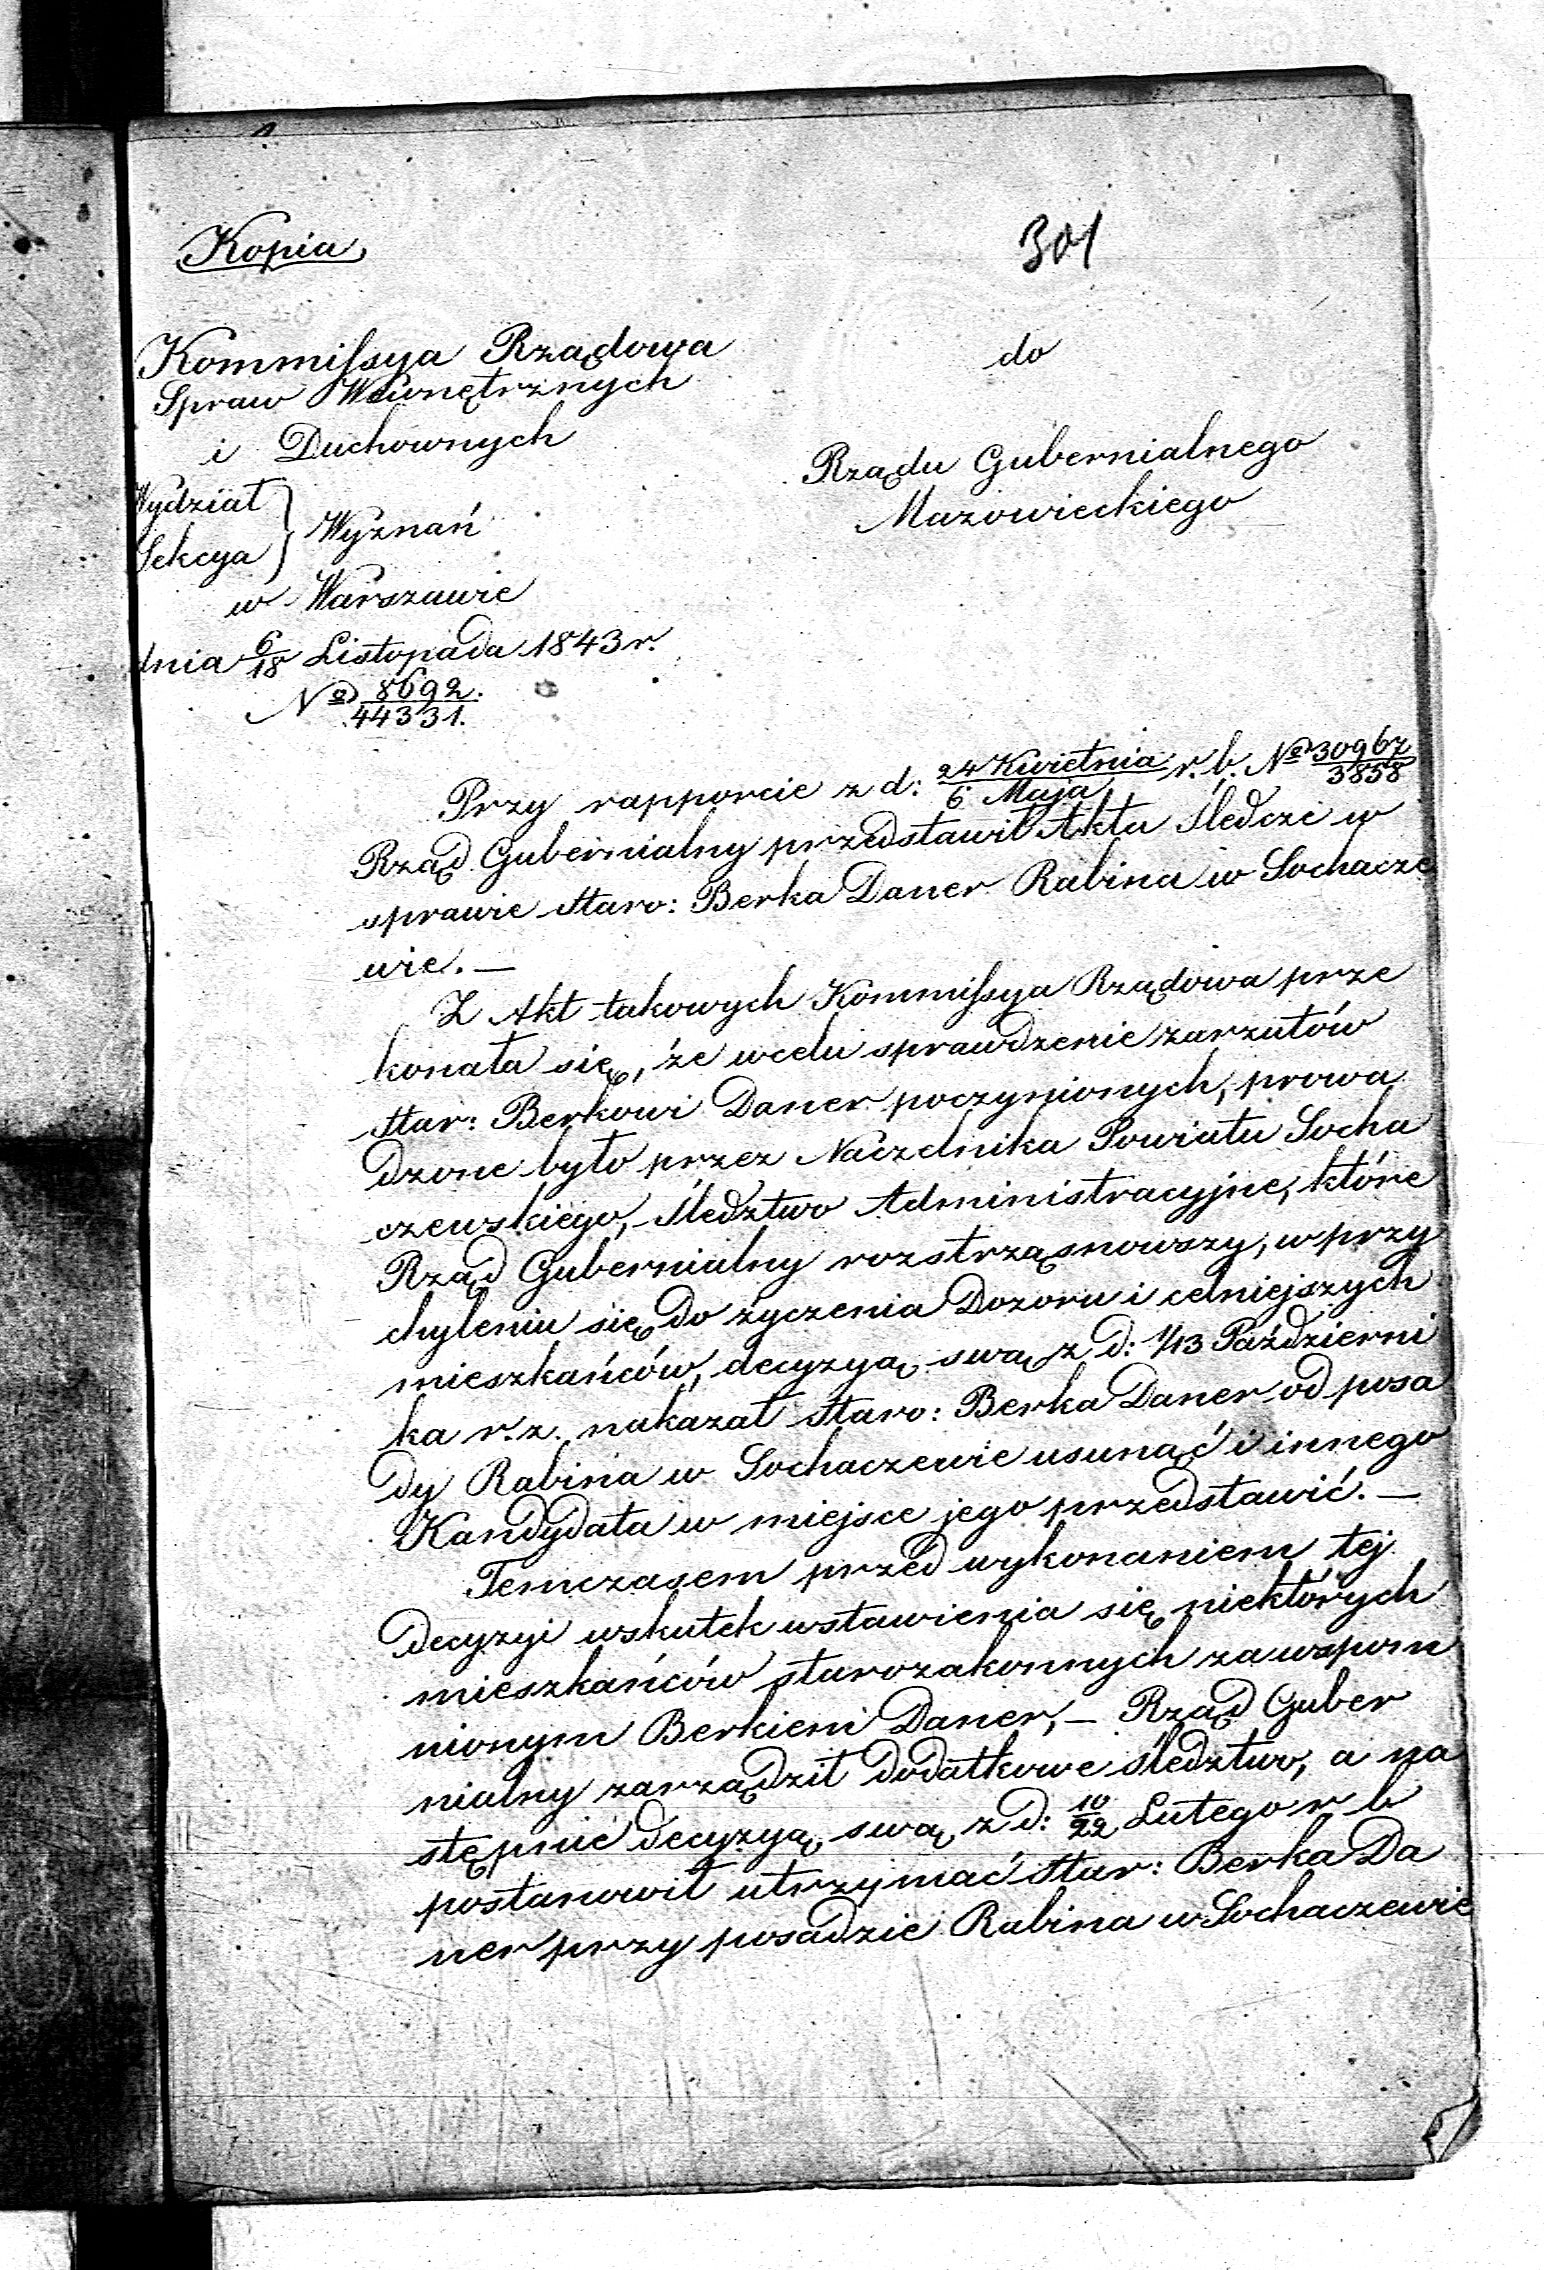 Kopia
301
Kommissya Rządowa
Spraw Wewnętrznych
i Duchownych
Wydział
Sekcya } Wyznań
w Warszawie
dnia 6/18 Listopada 1843 r.
No 8692./44331.
do
Rządu Gubernialnego
Mazowieckiego
Przy rapporcie z d: 24 Kwietnia/6 Maja r. b. No 30967/3858
Rząd Gubernialny przedstawił Akta śledcze w
sprawie Staro: Berka Daner Rabina w Sochacze
wie. —
Z Akt takowych Kommissya Rządowa prze
konała się, że w celu sprawdzenie zarzutów
Star: Berkowi Daner poczynionych, prowa
dzone było przez Naczelnika Powiatu Socha
czewskiego, śledztwo Administracyjne, które
Rząd Gubernialny rozstrząsnowszy, w przy
chyleniu się do życzenia Dozoru i celniejszych
mieszkańców, decyzyą swą z d: 1/13 Październi
ka r. z. nakazał Staro: Berka Daner od posa
dy Rabina w Sochaczewie usunąć i innego
Kandydata w miejsce jego przedstawić. —
Temczasem przed wykonaniem tej
decyzyi wskutek wstawienia się niektórych
mieszkańców starozakonnych za wspom
nionym Berkiem Daner, — Rząd Guber
nialny zarządził dodatkowe śledztwo, a na
stępnie decyzyą swą z d: 10/22 Lutego r b
postanowił utrzymać Star: Berka Da
ner przy posadzie Rabina w Sochaczewie